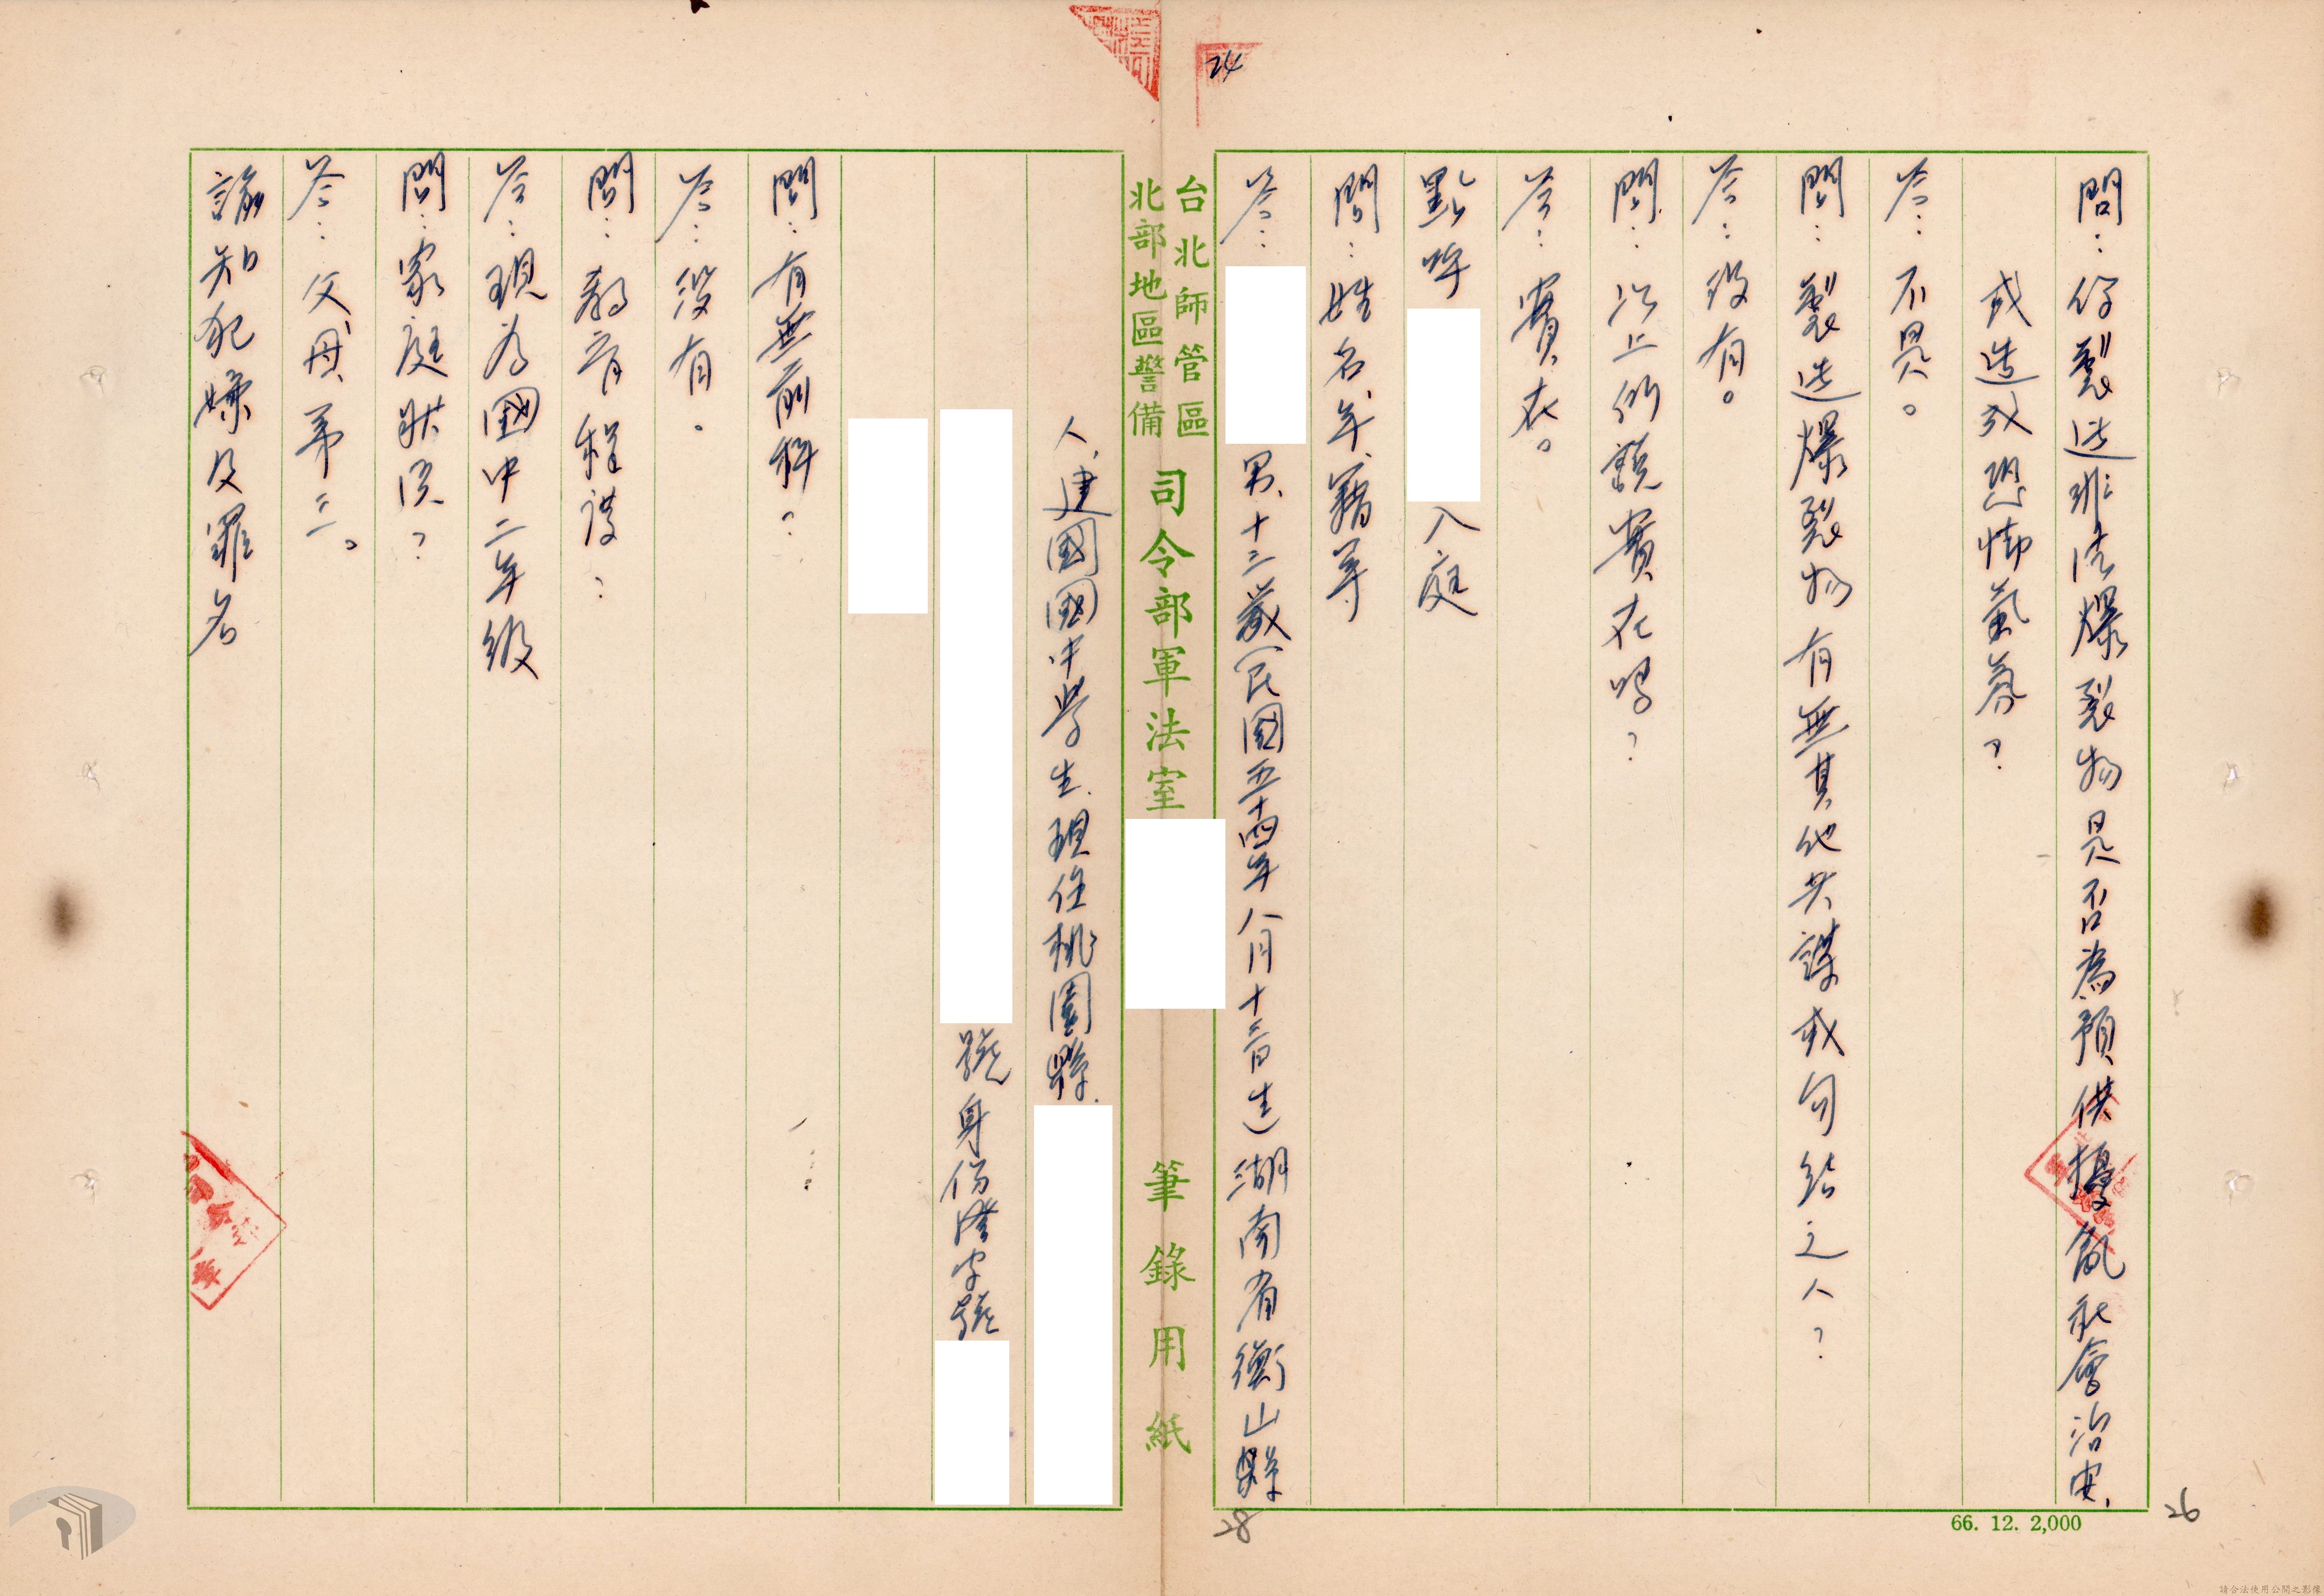 問：你製造非法爆裂物是否為預供擾亂社會治安、
或造成恐怖氣氛？
答：不是。
問：製造爆裂物有無其他共謀或勾結之人？
答：沒有。
問：以上所說實在嗎？
答：實在。
點呼
入庭
問：姓名、年、籍等
答：
男、十三歲（民國五十四年八月十三日生）湖南省衡山縣
24
台北師管區
北部地區警備
司令部軍法室
筆錄用紙
人、建國國中學生、現住桃園縣、
號身份證字號
問：有無前科？
答：沒有。
問：教育程度：
答：現為國中二年級
問：家庭狀況？
答：父、母、弟三。
諭知犯嫌及罪名
28
66. 12. 2,000
26
請合法使用公開之影像